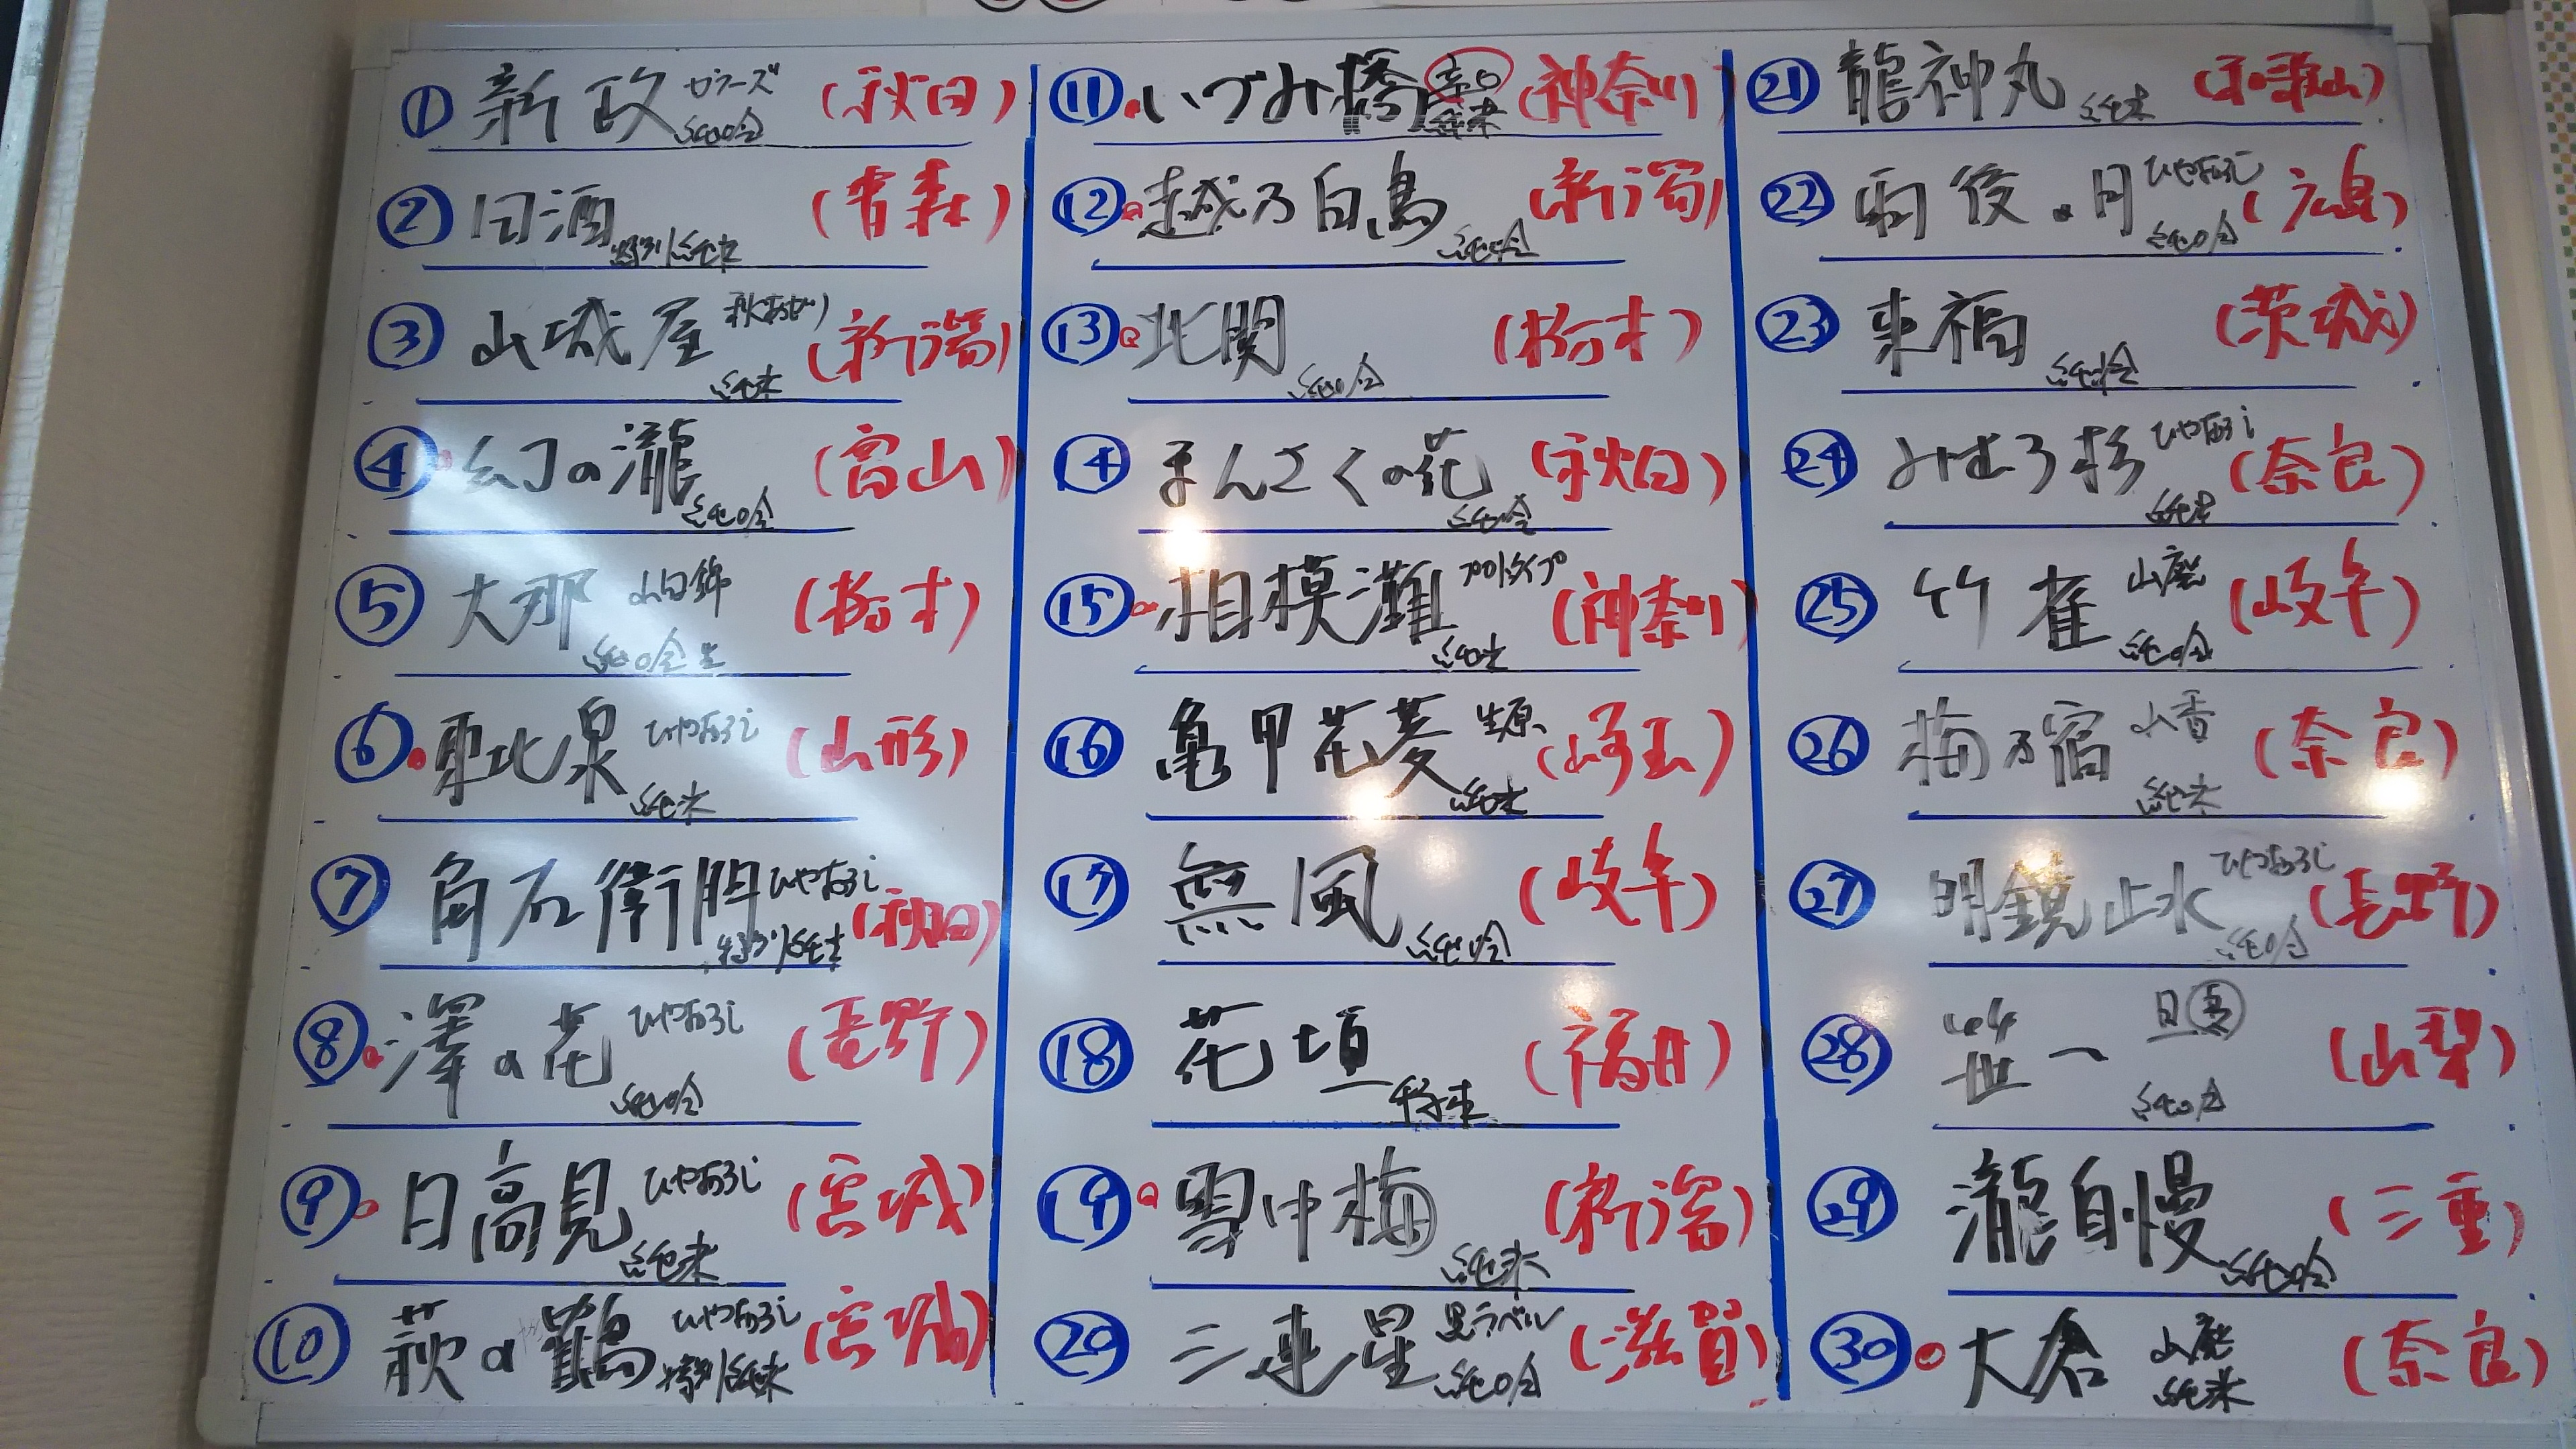 ① 新政 カラーズ 純吟 (秋田)
② 田酒 特別純米 (青森)
③ 山城屋 秋あがり 純米 (新潟)
④ 幻の瀧 純吟 (富山)
⑤ 大那 山田錦 純吟生 (栃木)
⑥ 東北泉 ひやおろし 純米 (山形)
⑦ 角右衛門 ひやおろし 特別純米 (秋田)
⑧ 澤の花 ひやおろし 純吟 (長野)
⑨ 日高見 ひやおろし 純米 (宮城)
⑩ 萩の鶴 ひやおろし 特別純米 (宮城)
⑪ いづみ橋 辛口 純米 (神奈川)
⑫ 越乃白鳥 純吟 (新潟)
⑬ 北関 純吟 (栃木)
⑭ まんさくの花 純吟 (秋田)
⑮ 相模灘 プロトタイプ 純米 (神奈川)
⑯ 亀甲花菱 生原 純米 (埼玉)
⑰ 無風 純吟 (岐阜)
⑱ 花垣 (福井)
⑲ 雪中梅 純米 (新潟)
⑳ 三連星 黒ラベル 純吟 (滋賀)
㉑ 龍神丸 純米 (和歌山)
㉒ 雨後の月 ひやおろし 純吟 (広島)
㉓ 来福 純吟 (茨城)
㉔ みむろ杉 ひやおろし 純米 (奈良)
㉕ 竹雀 山廃 純吟 (岐阜)
㉖ 梅乃宿 山香 純米 (奈良)
㉗ 明鏡止水 ひやおろし 純吟 (長野)
㉘ 笹一 純吟 (山梨)
㉙ 瀧自慢 純吟 (三重)
㉚ 大倉 山廃 純米 (奈良)